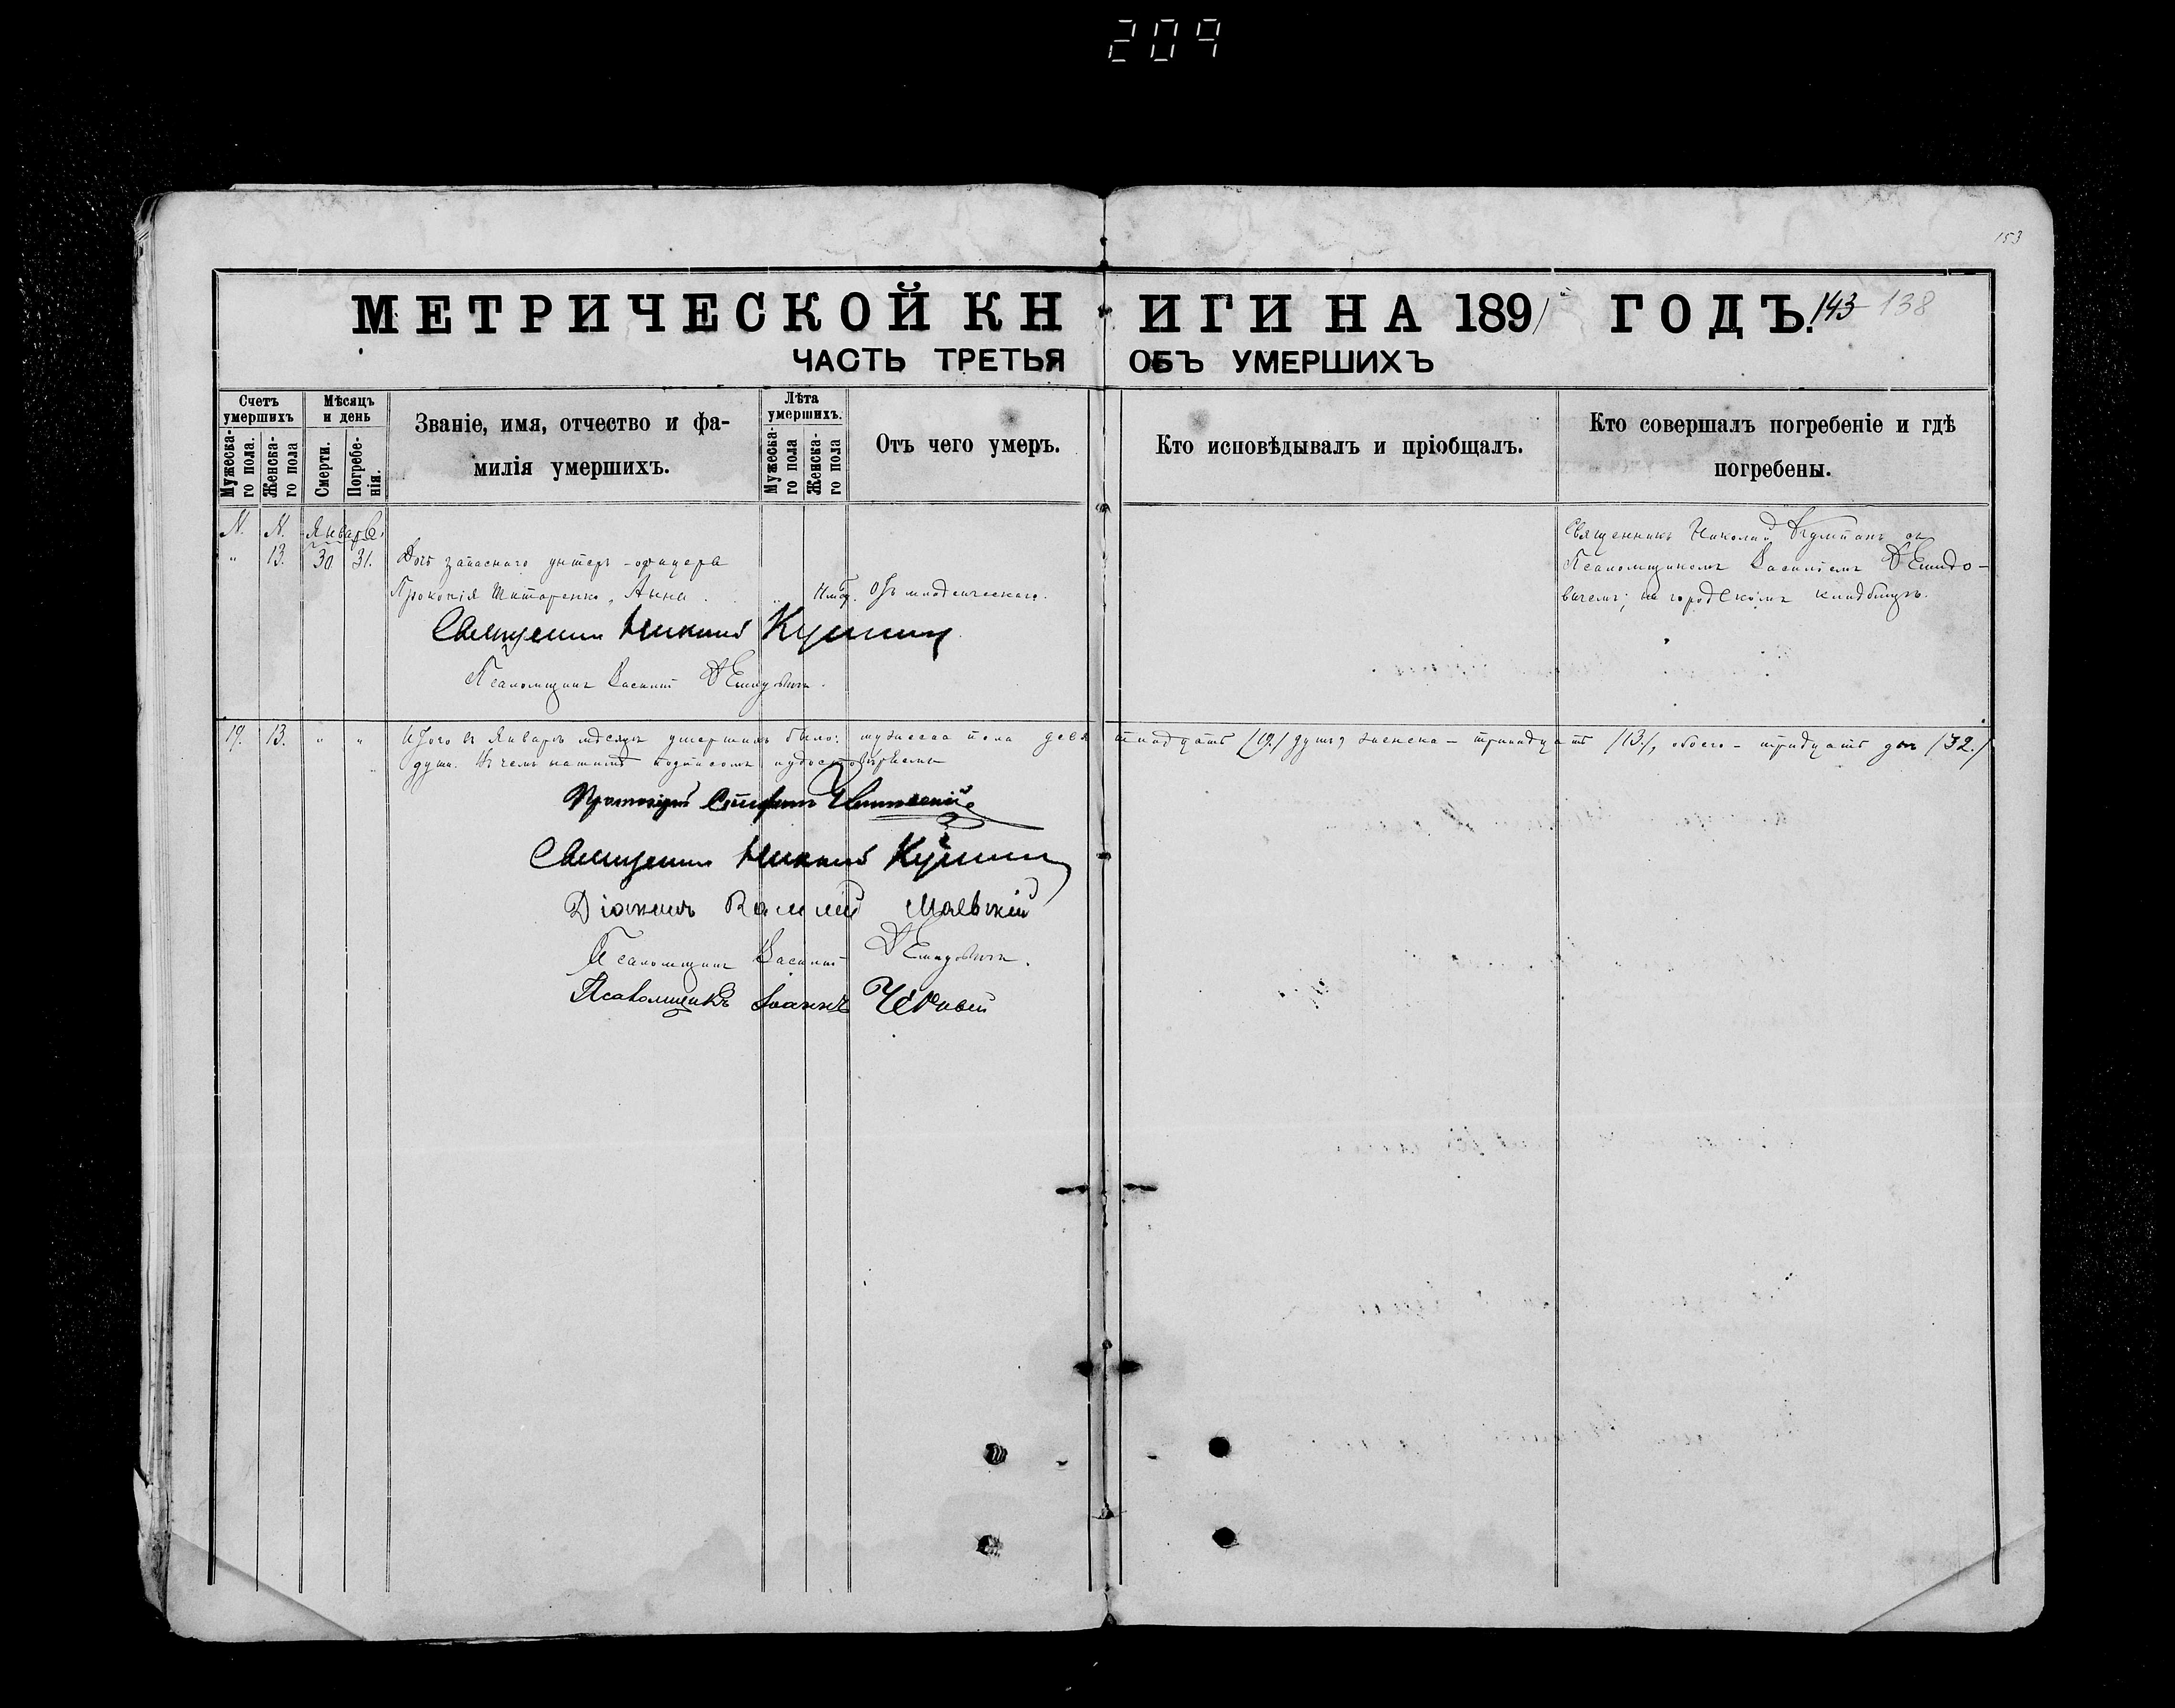 209
153
МЕТРИЧЕСКОЙ КНИГИ НА 1891 ГОДЪ. 143 138
ЧАСТЬ ТРЕТЬЯ ОБЪ УМЕРШИХЪ
Счетъ умершихъ
Мужеска-го пола.
Женска-го пола
Мѣсяцъ и день
Смерти.
Погребе-нія.
Званіе, имя, отчество и фа-
милія умершихъ.
Лѣта умершихъ.
Мужеска-го пола
Женска-го пола
Отъ чего умеръ.
Кто исповѣдывалъ и пріобщалъ.
Кто совершалъ погребеніе и гдѣ
погребены.
N. N. Январь.
" 13. 30 31. Дочь запаснаго унтеръ-офицера
Прокопія Титаренко, Анна. " Отъ младенческаго.
Священникъ Николай съ
Псаломщикомъ Василіемъ Демидо-
вичемъ; на городскомъ кладбищѣ.
Священникъ Николай
Псаломщикъ Василій Демидовичъ.
19. 13. " " Итого въ Январѣ мѣсяцѣ умершихъ было: мужеска пола девятнадцать /19./ душъ, женска – тринадцать /13./, обоего – тридцать двѣ /32./
души. Въ чемъ нашимъ подписомъ
Протоіерей Стефанъ
Священникъ Николай
Діаконъ Василій Маевскій
Псаломщикъ Василій Демидовичъ.
Псаломщикъ Іоаннъ